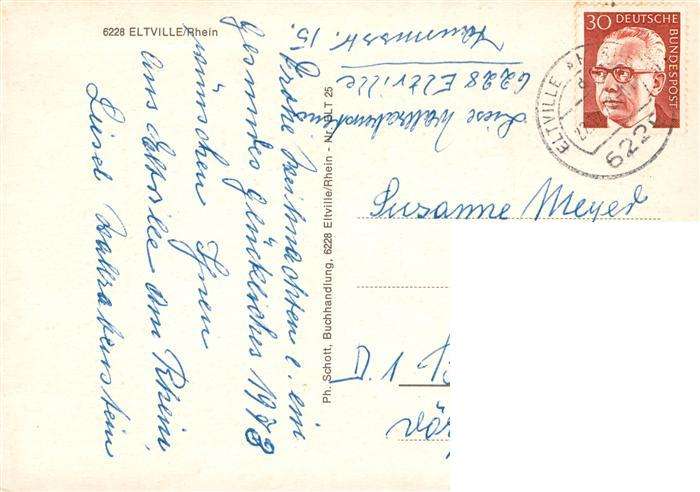 6228 ELTVILLE/Rhein
Frohe Weihnachten u. ein
gesundes glückliches 1973
wünschen Ihnen
aus Eltville am Rhein,
Liesel Wallrabenstein
Ph. Schott, Buchhandlung, 6228 Eltville/Rhein - Nr. ELT 25
Liese Wallrabenstein
6228 Eltville
Taunusstr. 15.
30 DEUTSCHE
BUNDESPOST
ELTVILLE
6228
Susanne Meyer
D. 1